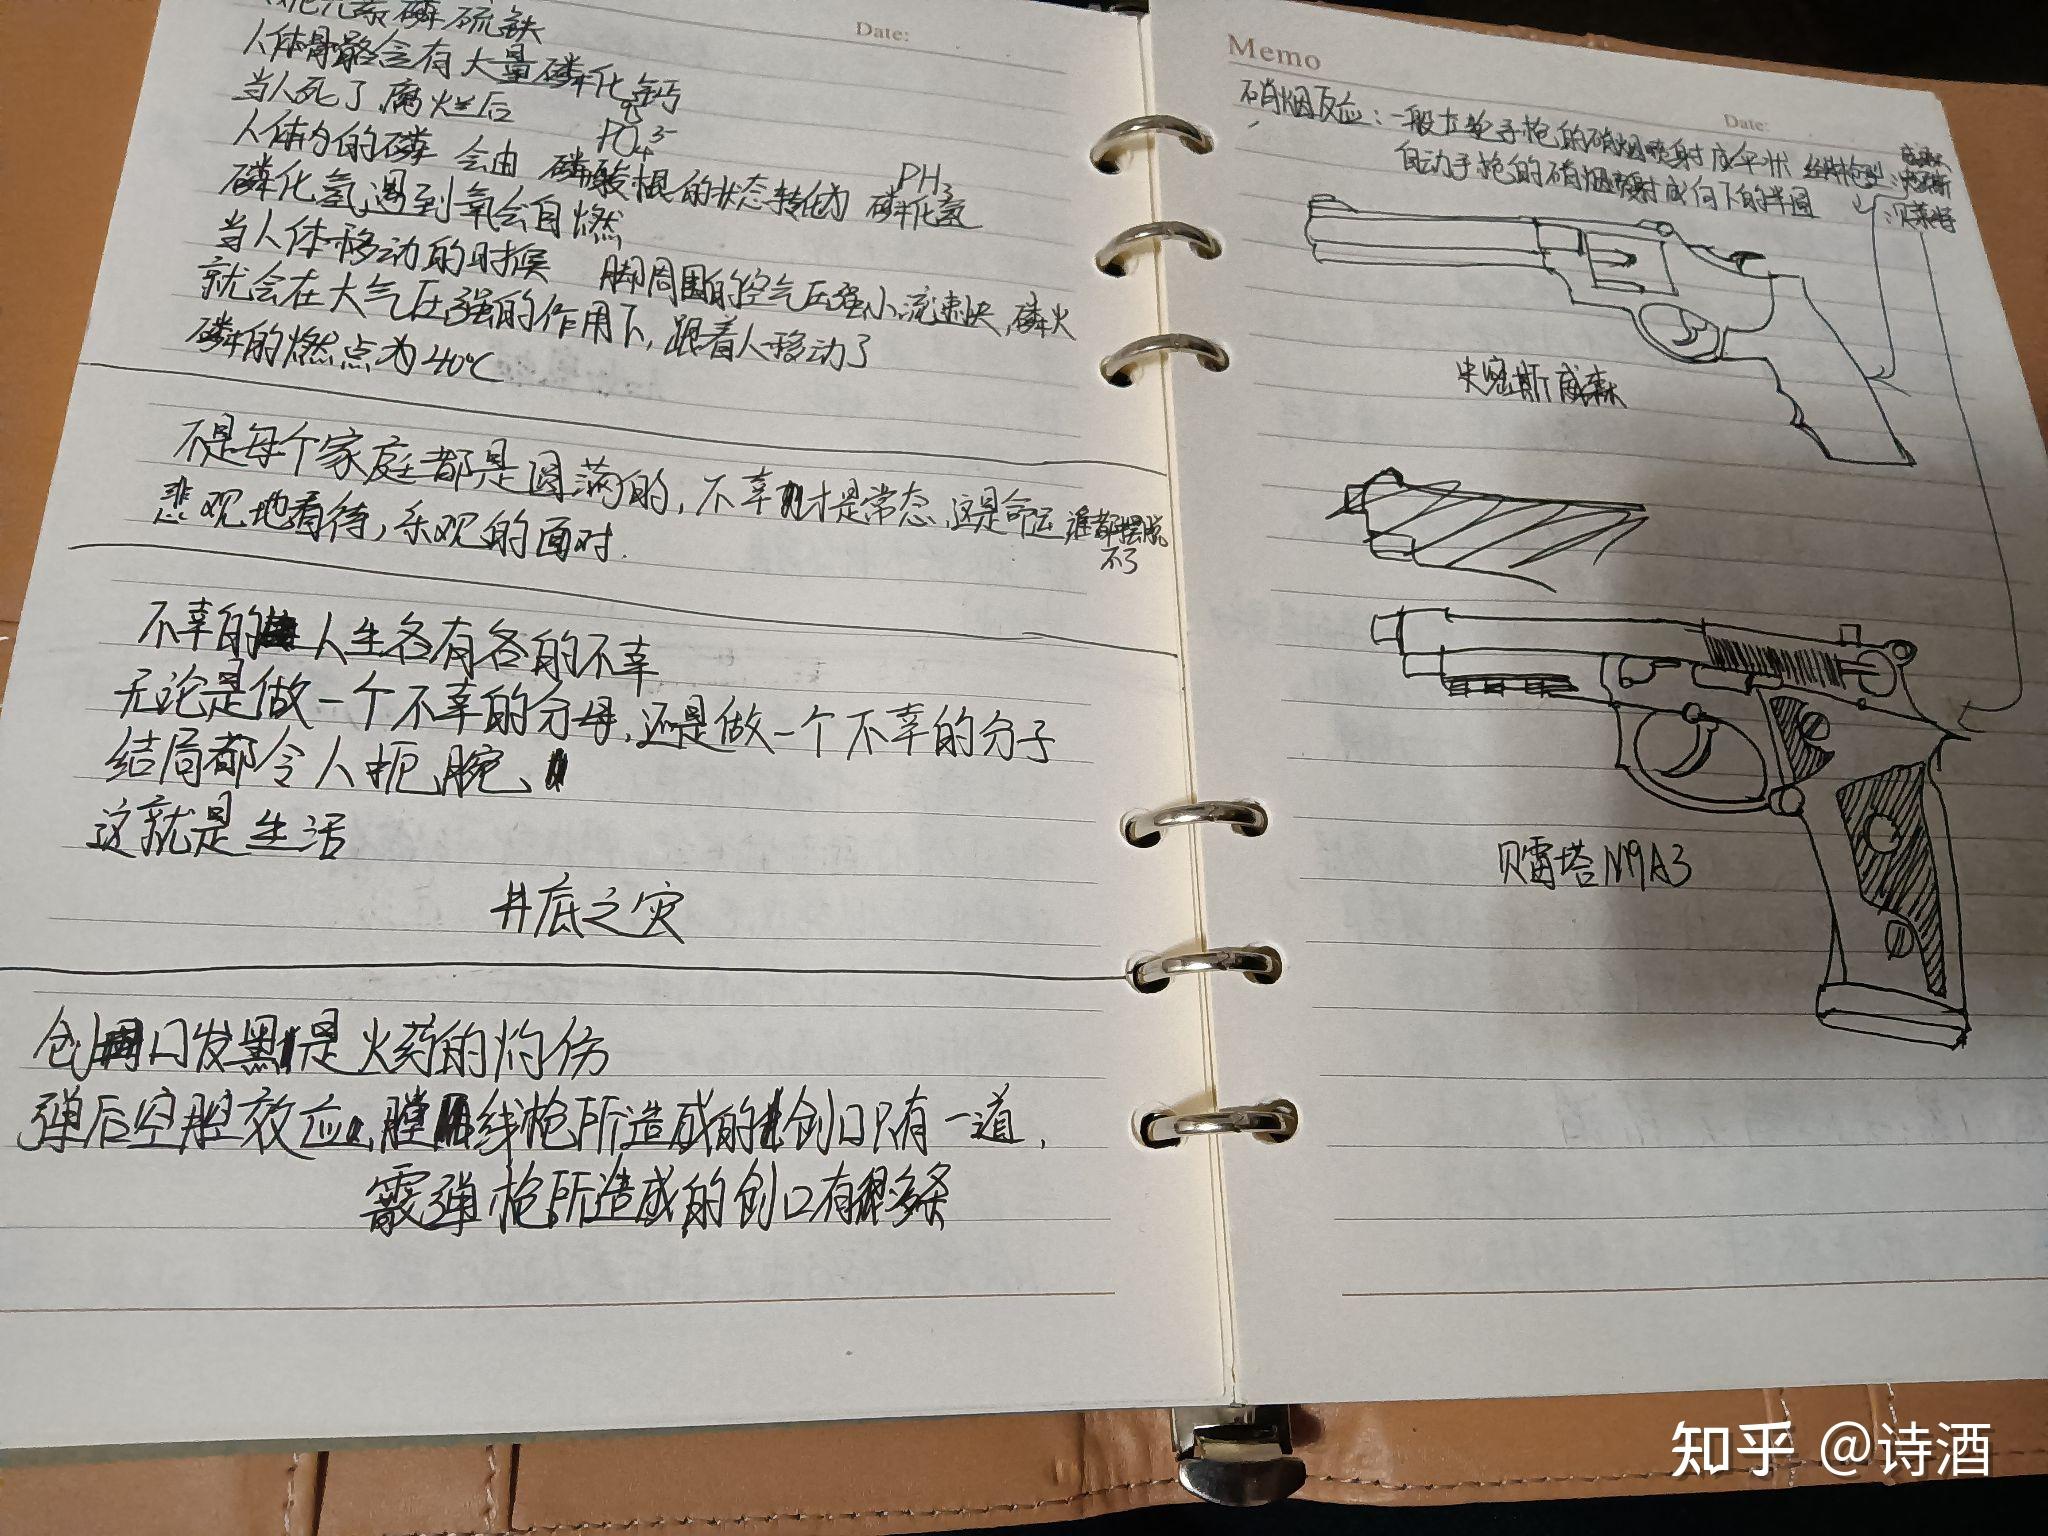 元素磷硫铁
人体骨骼含有大量磷化钙
当人死了腐烂后
PO₄³⁻
人体内的磷 会由 磷酸根的状态转化为 磷化氢
PH₃
磷化氢遇到氧会自燃
当人体移动的时候 脚周围的空气压强小流速快,磷火
就会在大气压强的作用下,跟着人移动了
磷的燃点为40℃
不是每个家庭都是圆满的,不幸才是常态,这是命运,谁都摆脱
不了
悲观地看待,乐观的面对.
不幸的人生各有各的不幸
无论是做一个不幸的分母,还是做一个不幸的分子
结局都令人扼腕、
这就是生活
井底之灾
创口发黑是火药的灼伤
弹后空腔效应,膛线枪所造成的创口只有一道,
霰弹枪所造成的创口有很多条
Memo
Date:
Date:
硝烟反应:一般左轮手枪的硝烟喷射成伞状
自动手枪的硝烟喷射成向下的半圆
史密斯威森
贝雷塔M9A3
知乎 @诗酒